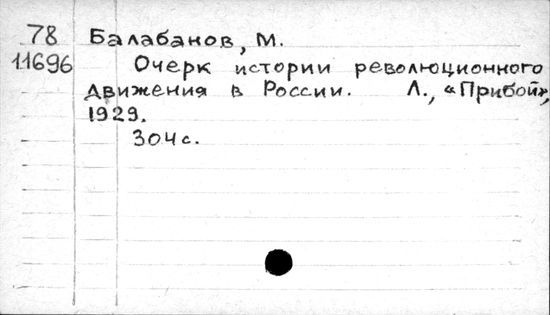 78 Балабанов, М.
11696 Очерк истории революционного
движения в России. Л., «Прибой»,
1929.
304 с.